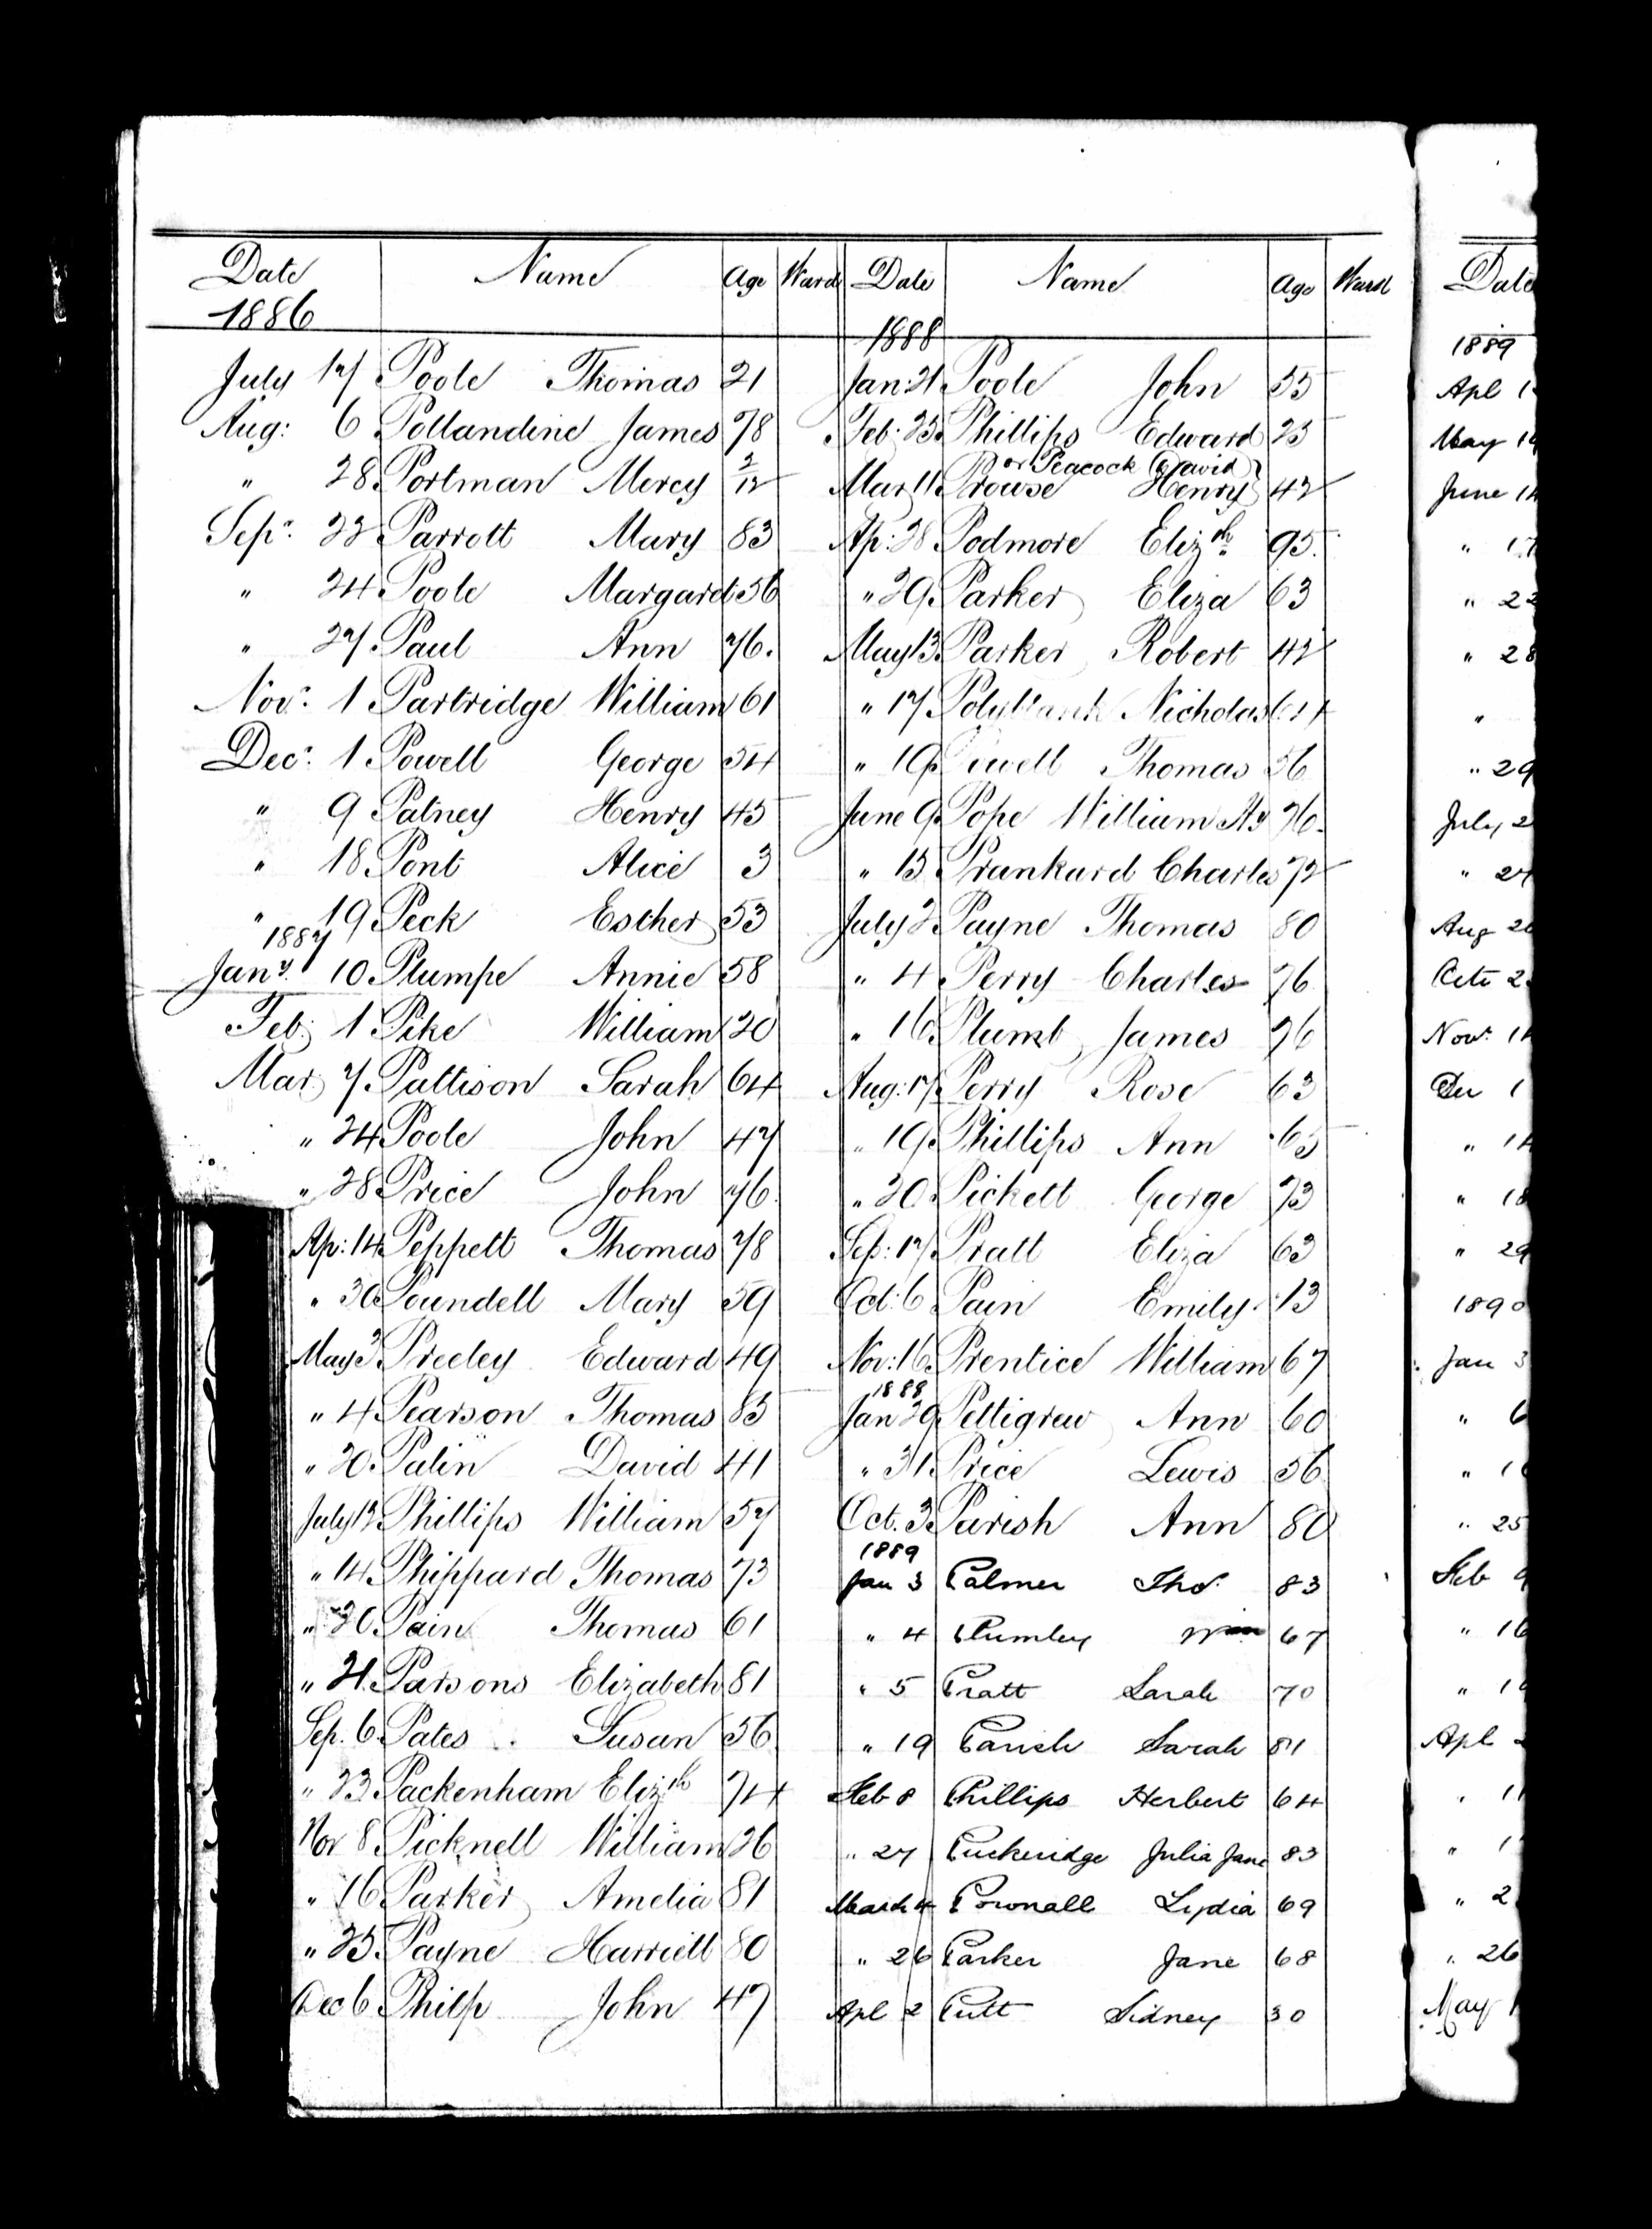 Date Name Age Ward
1886
July 17 Poole Thomas 21
Aug: 6 Pollandine James 78
" 28 Portman Mercy 2/12
Sepr. 22 Parrott Mary 83
" 24 Poole Margaret 56
" 27 Paul Ann 76
Novr. 1 Partridge William 61
Decr. 1 Powell George 54
" 9 Patney Henry 45
" 18 Pont Alice 3
" 19 Peck Esther 53
1887
Jany. 10 Plumpe Annie 58
Feb: 1 Pike William 20
Mar 7 Pattison Sarah 64
" 24 Poole John 47
" 28 Price John 76
Ap: 14 Peppett Thomas 78
" 30 Poundell Mary 59
May 3 Preeley Edward 49
" 4 Pearson Thomas 85
" 20 Palin David 41
July 12 Phillips William 57
" 14 Phippard Thomas 73
" 20 Pain Thomas 61
" 21 Parsons Elizabeth 81
Sep. 6 Pates Susan 56
" 23 Packenham Elizth 74
Nov 8 Picknell William 26
" 16 Parker Amelia 81
" 25 Payne Harriett 80
Dec 6 Philp John 47
Date Name Age Ward
1888
Jan: 21 Poole John 55
Feb: 25 Phillips Edward 23
or Peacock (David)
Mar 11 Prowse Henry 42
Ap: 28 Podmore Elizth 95
" 29 Parker Eliza 63
May 13 Parker Robert 42
" 17 Polyblank Nicholas
" 19 Thomas 56
June 9 Pope William Hy 76
" 13 Prankard Charles 72
July 2 Payne Thomas 80
" 4 Perry Charles 76
" 16 Plumb James 76
Aug: 17 Perry Rose 63
" 19 Phillips Ann 65
" 20 Pickett George 73
Sep: 17 Pratt Eliza 63
Oct: 6 Pain Emily 13
Nov: 16 Prentice William 67
1888
Jan 29 Pettigrew Ann 60
" 31 Price Lewis 56
Oct. 3 Parish Ann 80
1889
Jan 3 Palmer Thos. 83
" 4 Plumley Wm 67
" 5 Pratt Sarah 70
" 19 Parish Sarah 81
Feb 8 Phillips Herbert 64
" 27 Puckeridge Julia Jane 83
March 4 Pownall Lydia 69
" 26 Parker Jane 68
Apl 2 Putt Sidney 30
Date
1889
Apl
May
June
"
" 22
" 28
"
" 29
July 2
"
Aug
Oct
Nov.
Dec
"
" 18
" 29
1890
Jan 3
" 6
"
" 25
Feb 9
" 16
"
Apl
"
"
" 2
" 26
May